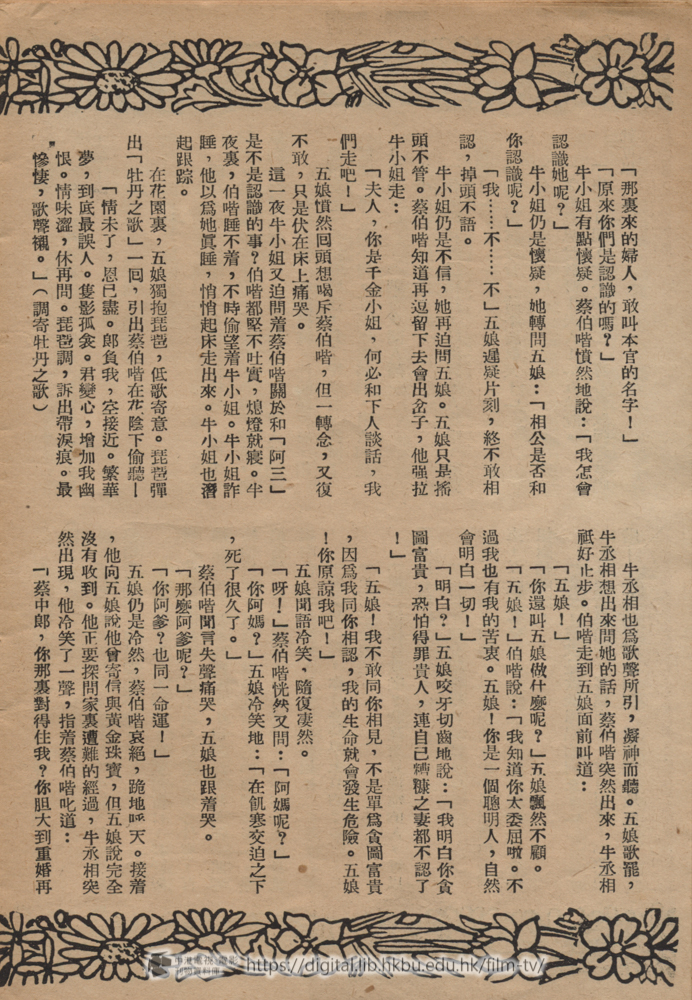 「那裏來的婦人，敢叫本官的名字！」
「原來你們是認識的嗎？」
牛小姐有點懷疑。蔡伯喈憤然地說：「我怎會
認識她呢？」
牛小姐仍是懷疑，她轉問五娘：「相公是否和
你認識呢？」
「我……不……不」五娘遲疑片刻，終不敢相
認，掉頭不語。
牛小姐仍是不信，她再迫問五娘。五娘只是搖
頭不管。蔡伯喈知道再逗留下去會出岔子，他强拉
牛小姐走：
「夫人，你是千金小姐，何必和下人談話，我
們走吧！」
五娘憤然回頭想喝斥蔡伯喈，但一轉念，又復
不敢，只是伏在床上痛哭。
這一夜牛小姐又迫問着蔡伯喈關於和「阿三」
是不是認識的事？伯喈都堅不吐實，熄燈就寢。半
夜裏，伯喈睡不着，不時偷望着牛小姐。牛小姐詐
睡，他以爲她眞睡，悄悄起床走出來。牛小姐也潛
起跟踪。
在花園裏，五娘獨抱琵琶，低歌寄意。琵琶彈
出「牡丹之歌」一回，引出蔡伯喈在花陰下偷聽—
「情未了，恩已盡。郎負我，空接近。繁華
夢，到底最誤人。隻影孤衾。君變心，增加我幽
恨。情味澀，休再問。琵琶調，訴出帶淚痕。最
慘悽，歌聲襯。」（調寄牡丹之歌）
牛丞相也爲歌聲所引，凝神而聽。五娘歌罷，
牛丞相想出來問她的話，蔡伯喈突然出來，牛丞相
祇好止步。伯喈走到五娘面前叫道：
「五娘！」
「你還叫五娘做什麼呢？」五娘飄然不顧。
「五娘！」伯喈說：「我知道你太委屈嘞。不
過我也有我的苦衷。五娘！你是一個聰明人，自然
會明白一切！」
「明白？」五娘咬牙切齒地說：「我明白你貪
圖富貴，恐怕得罪貴人，連自己糟糠之妻都不認了
！」
「五娘！我不敢同你相見，不是單爲貪圖富貴
，因爲我同你相認，我的生命就會發生危險。五娘
！你原諒我吧！」
五娘聞語冷笑，隨復凄然。
「呀！」蔡伯喈恍然又問：「阿媽呢？」
「你阿媽？」五娘冷笑地：「在飢寒交迫之下
，死了很久了。」
蔡伯喈聞言失聲痛哭，五娘也跟着哭。
「那麼阿爹呢？」
「你阿爹？也同一命運！」
五娘仍是冷然，蔡伯喈哀絕，跪地呼天。接着
，他向五娘說他曾寄信與黃金珠寶，但五娘說完全
沒有收到。他正要探問家裏遭難的經過，牛丞相突
然出現，他冷笑了一聲，指着蔡伯喈叱道：
「蔡中郎，你那裏對得住我？你胆大到重婚再
https://digital.lib.hkbu.edu.hk/film-tv/